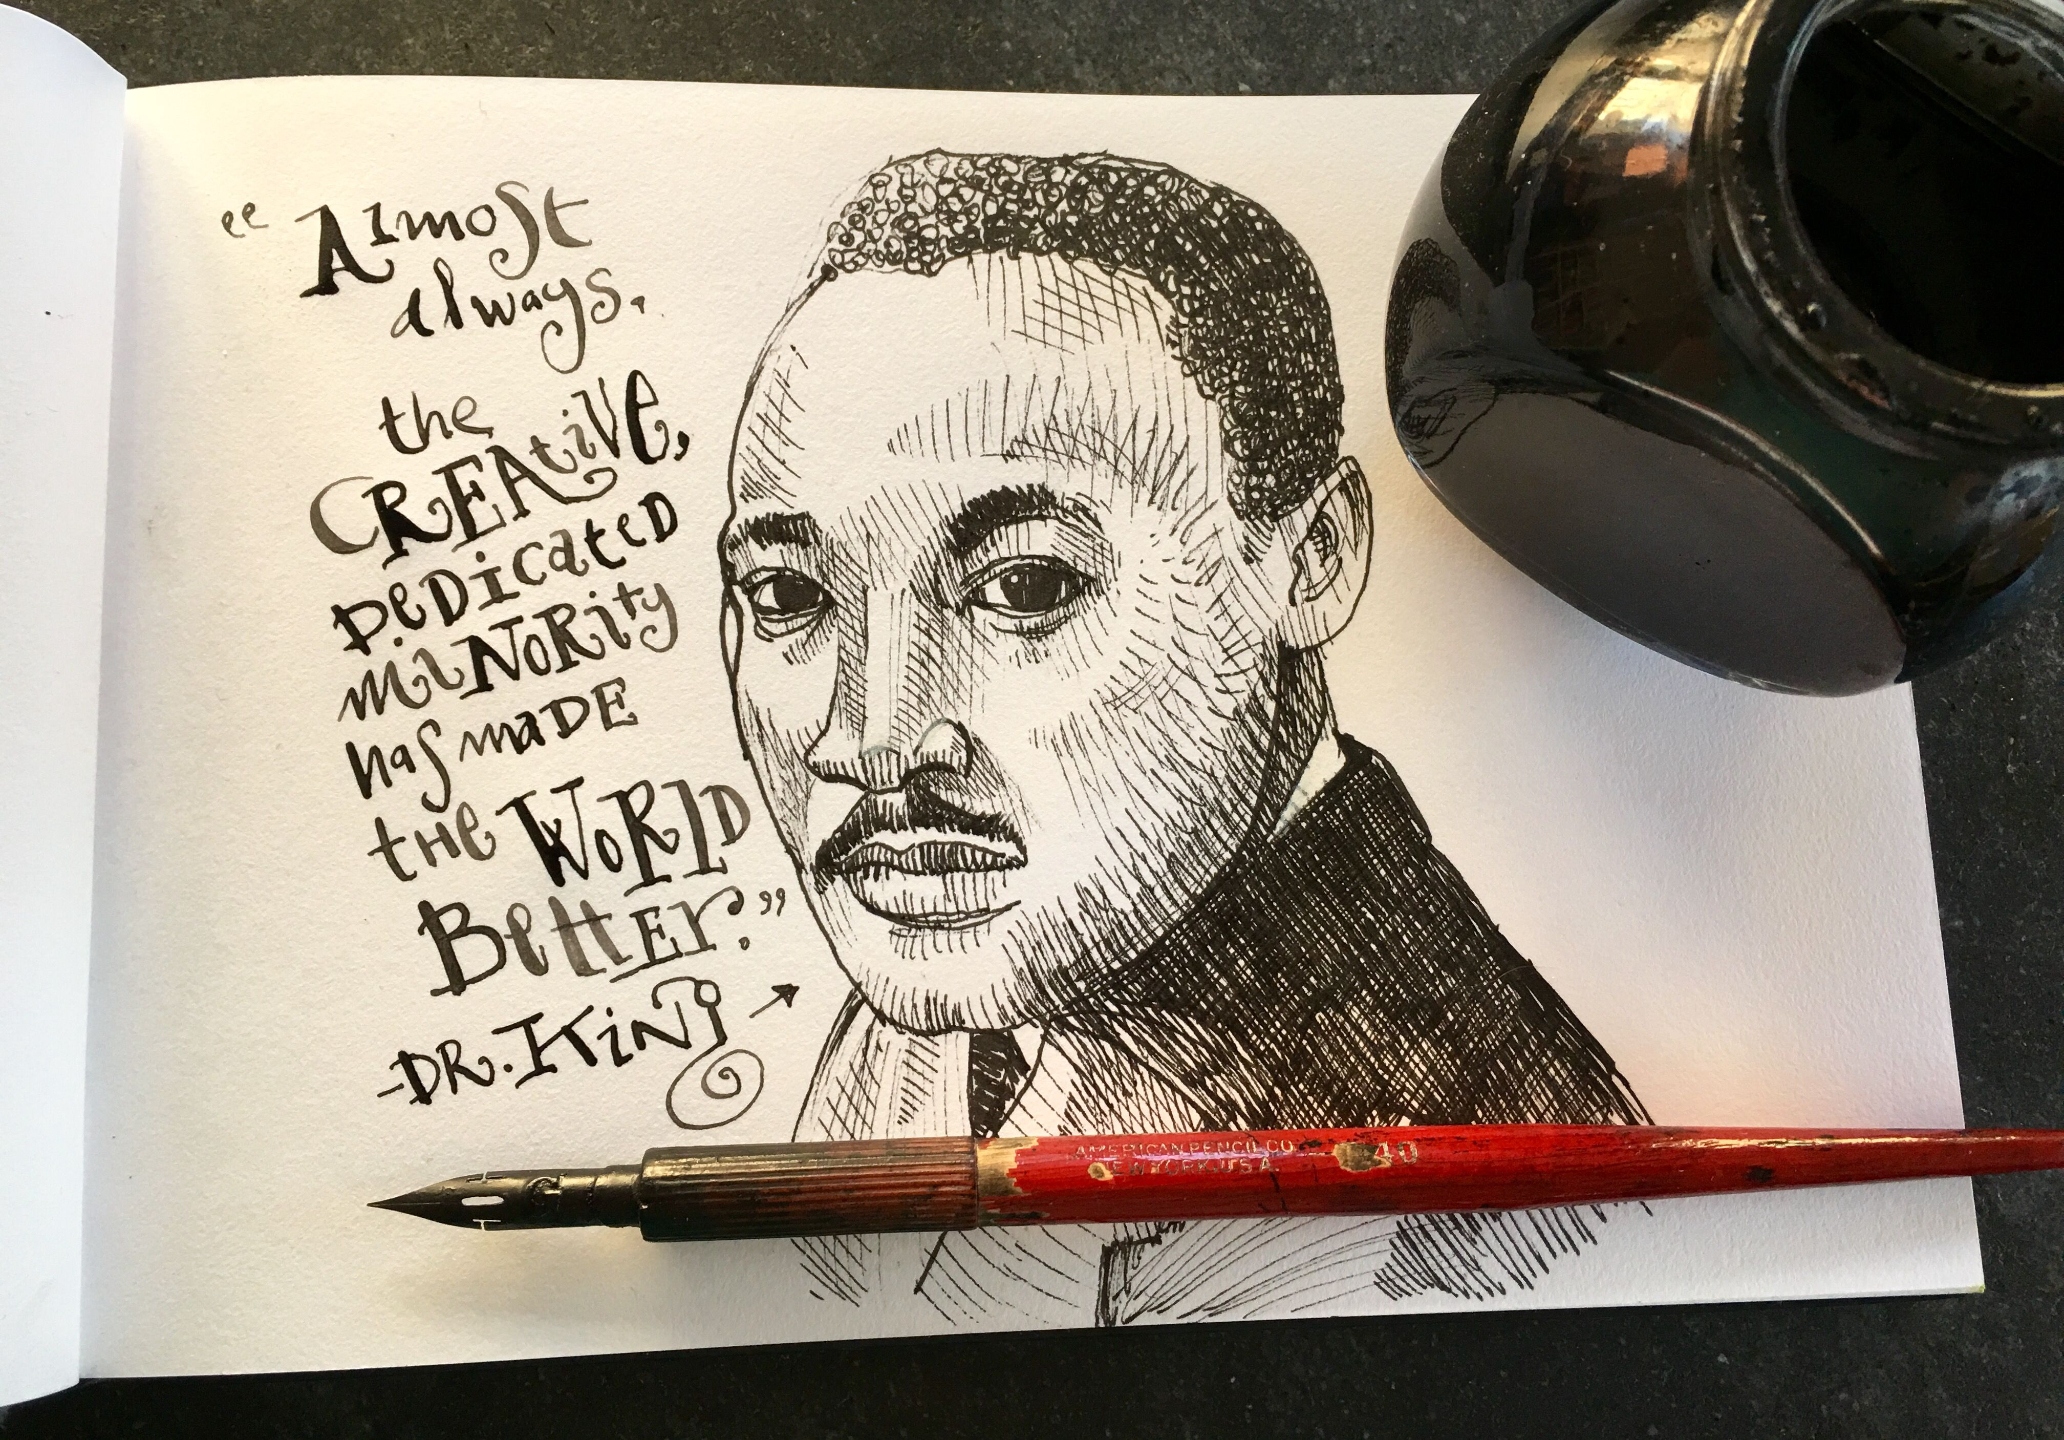 “Almost
always,
the
CREAtiVe,
DeDicateD
miNORity
has maDE
tHe WoRlD
BettER.”
-DR. KiNg
AMERICAN PENCIL CO.
NEW YORK, U.S.A.
40